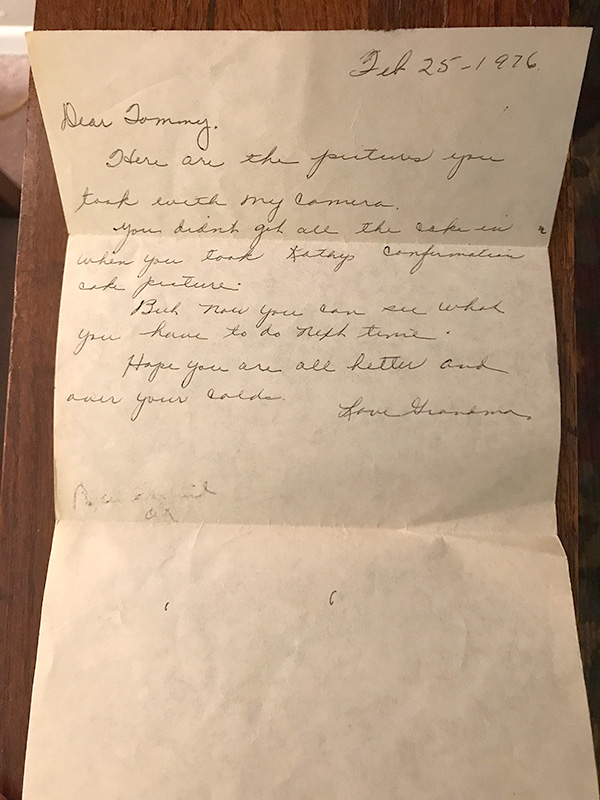 Feb 25-1976.
Dear Tommy.
Here are the pictures you
took with my camera.
You didnt get all the cake in
when you took Kathys Confirmation
cake picture.
But now you can see what
you have to do next time.
Hope you are all better and
over your colds.
Love Grandma.